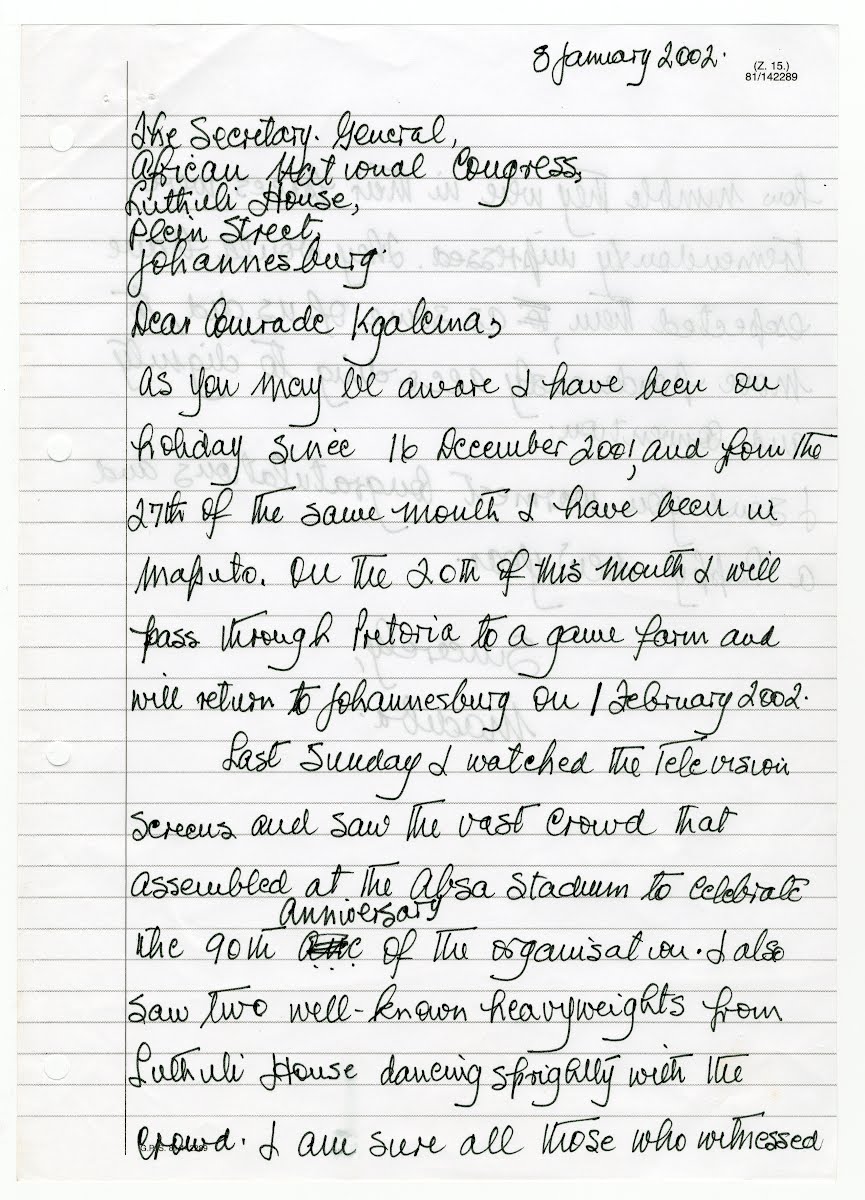 8 January 2002.
(Z. 15.)
81/142289
The Secretary. General,
African National Congress,
Luthuli House,
Plein Street,
Johannesburg.
Dear Comrade Kgalema,
As you may be aware I have been on
holiday since 16 December 2001, and from the
27th of the same month I have been in
Maputo. On the 20th of this month I will
pass through Pretoria to a game farm and
will return to Johannesburg on 1 February 2002.
Last Sunday I watched the Television
screens and saw the vast crowd that
assembled at the Absa Stadium to celebrate
Anniversary
the 90th of the organisation. I also
saw two well-known heavyweights from
Luthuli House dancing sprightly with the
crowd. I am sure all those who witnessed